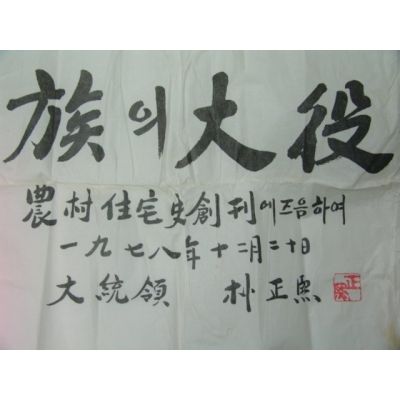 族의大役
農村住宅史創刊에즈음하여
一九七八年十二月二十日
大統領 朴正熙